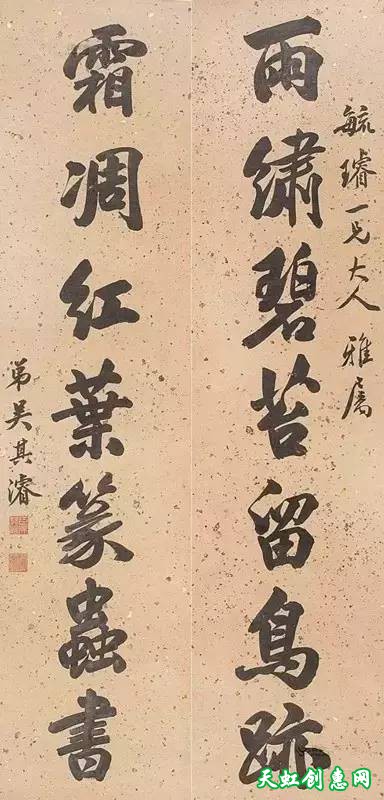 毓璿一兄大人雅属
雨繡碧苔留鳥跡
霜凋红葉篆蟲書
弟吴其濬
天虹创惠网